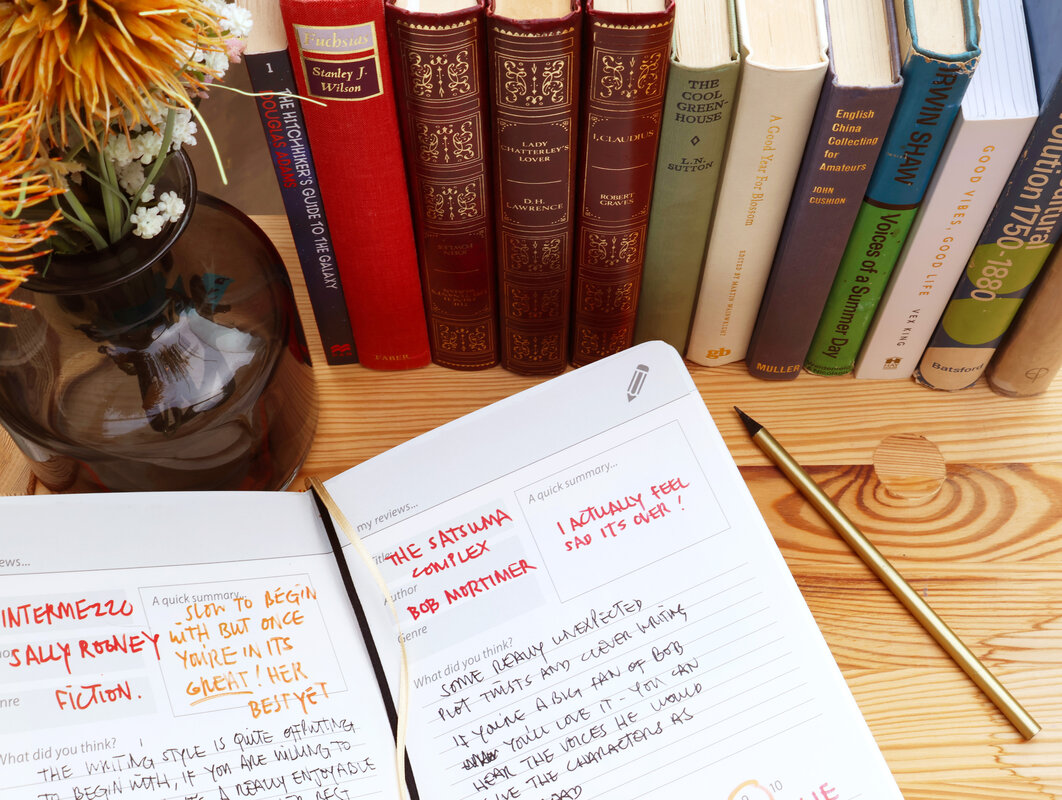 Fuchsias
Stanley J.
Wilson
FABER
1
THE HITCHHIKER'S GUIDE TO THE GALAXY
DOUGLAS ADAMS
LADY
CHATTERLEY'S
LOVER
D.H.
LAWRENCE
I, CLAUDIUS
ROBERT
GRAVES
THE
COOL
GREEN-
HOUSE
L.N.
SUTTON
A Good Year For Blossom
EDITED BY MARTIN WAINWRIGHT
gb
English
China
Collecting
for
Amateurs
JOHN
CUSHION
MULLER
IRWIN SHAW
Voices of a
Summer Day
GOOD VIBES, GOOD LIFE
VEX KING
1750-
1880
Batsford
my reviews...
Title
THE SATSUMA
COMPLEX
Author
BOB MORTIMER
Genre
A quick summary...
I ACTUALLY FEEL
SAD ITS OVER!
What did you think?
SOME REALLY UNEXPECTED
PLOT TWISTS AND CLEVER WRITING
IF YOU'RE A BIG FAN OF BOB
YOU'LL LOVE IT - YOU CAN
HEAR THE VOICES HE WOULD
GIVE THE CHARACTERS AS
10
INTERMEZZO
SALLY ROONEY
FICTION.
A quick summary...
SLOW TO BEGIN
WITH BUT ONCE
YOU'RE IN ITS
GREAT! HER
BEST YET
What did you think?
THE WRITING STYLE IS QUITE OFFPUTTING
TO BEGIN WITH, IF YOU ARE WILLING TO
A REALLY ENJOYABLE